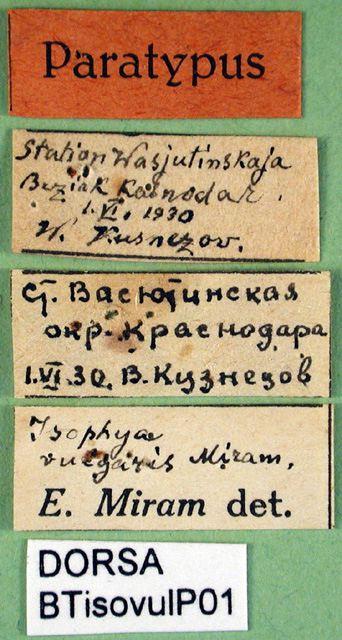 Paratypus
Station Wasjutinskaja
Bezirk Kasnodar.
1.VI. 1930
W. Kusnezov.
ст. Васютинская
окр. Краснодара
1.VI.30. В. Кузнецов
Isophya
vulgaris Miram,
E. Miram det.
DORSA
BTisovulP01